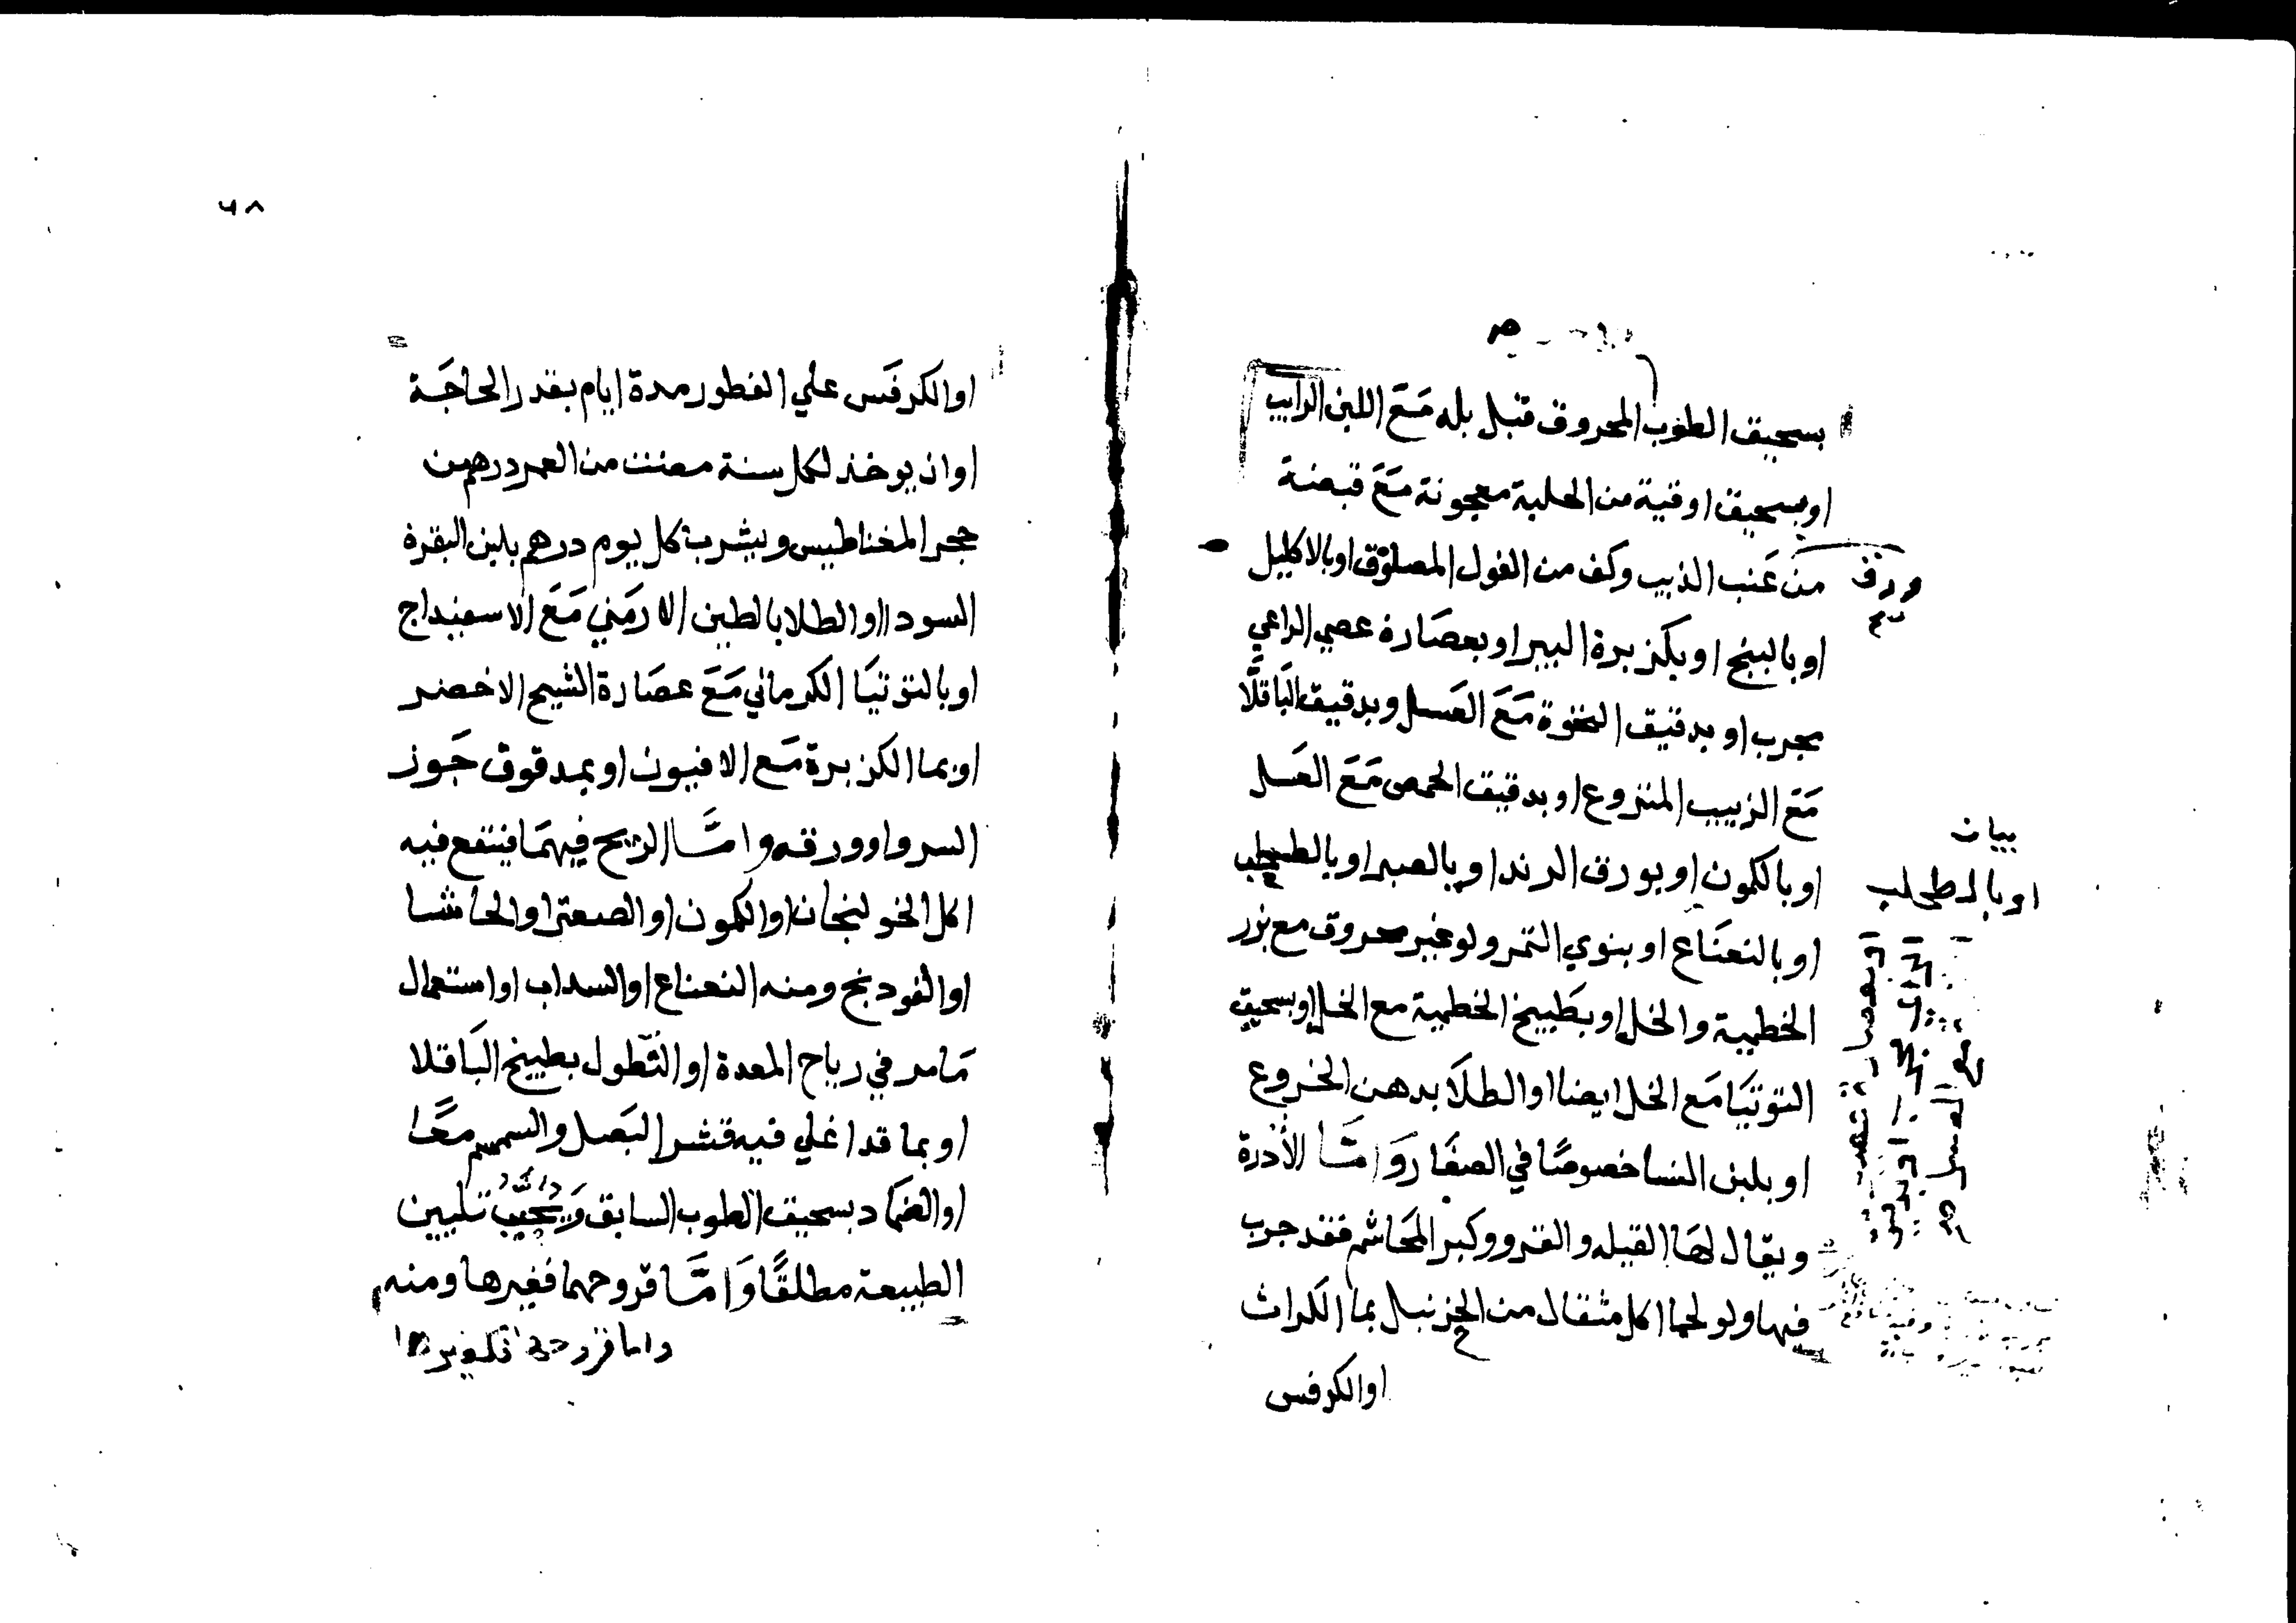 بسحيق الطوب المحروق قبل بله مَعَ اللبن الرايب
او بسحيق اوقية من الحلبة معجونة مَعَ قبضة
من عَنب الذيب وكف من الفول المصلوق او بالاكليل
ورق
او بالبنج او بكزبرة البير او بعصَارة عصي الراعي
مجرب او بدقيق النخوة مَعَ العَسل وبدقيق البَاقلَّا
مَعَ الزبيب المنزوع او بدقيق الحمص مَعَ العَسل
او بالكمون او بورق الرند او بالصبر او بالطحلب
بيان
او بالطحلب
او بالنعنَاع او بنوي التمر ولو غير محروق مع بزر
الخطمية والخل او بطبيخ الخطمية مع الخل او بسحيق
التوتيَا مَع الخل ايضا او الطلَا بدهن الخروع
او بلبن النسا خصوصًا في الصغَار وَامَّا الأدرة
ويقال لهَا القيله والقرو وكبر المحَاشم فقد جرب
فيها ولو لحما اكل مثقال من الحزنبل بما الكراث
او الكرفس
٦٨
او الكرفَس علي الفطور مدة ايام بقدر الحاجَة
او ان يوخذ لكل سنة مضت من العمر درهم من
حجر المغناطيس ويشرب كل يوم درهم بلبن البقرة
السودا او الطلا بالطين الارمَني مَعَ الاسفيداج
او بالتوتيَا الكرماني مَعَ عصَارة الشيح الاخضر
او بما الكزبرة مَع الافيون او بمدقوق جَوز
السرو او ورقه وامَّا الريح فيهمَا فينفع فيه
اكل الخولنجان او الكمون او الصعتر او الحاشا
او الفودنج ومنه النعناع او السداب او استعمال
مَا مر في رياح المعدة او النَّطول بطبيخ البَاقلا
او بما قد اغلي فيه قشر البَصل والسمسم معًا
او الضمَاد بسحيق الطوب السابق وَيُجيبُ تليين
الطبيعة مطلقًا وَامَّا قروحهما فغيرها ومنه